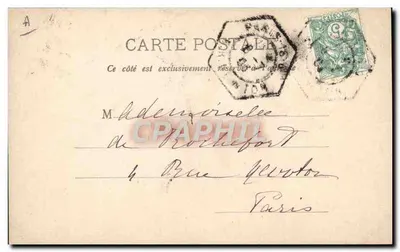 A
CARTE POSTALE
Ce côté est exclusivement réservé
PARIS
5
Mademoiselle
de Rochefort
4 Rue
Paris
CPARAMA